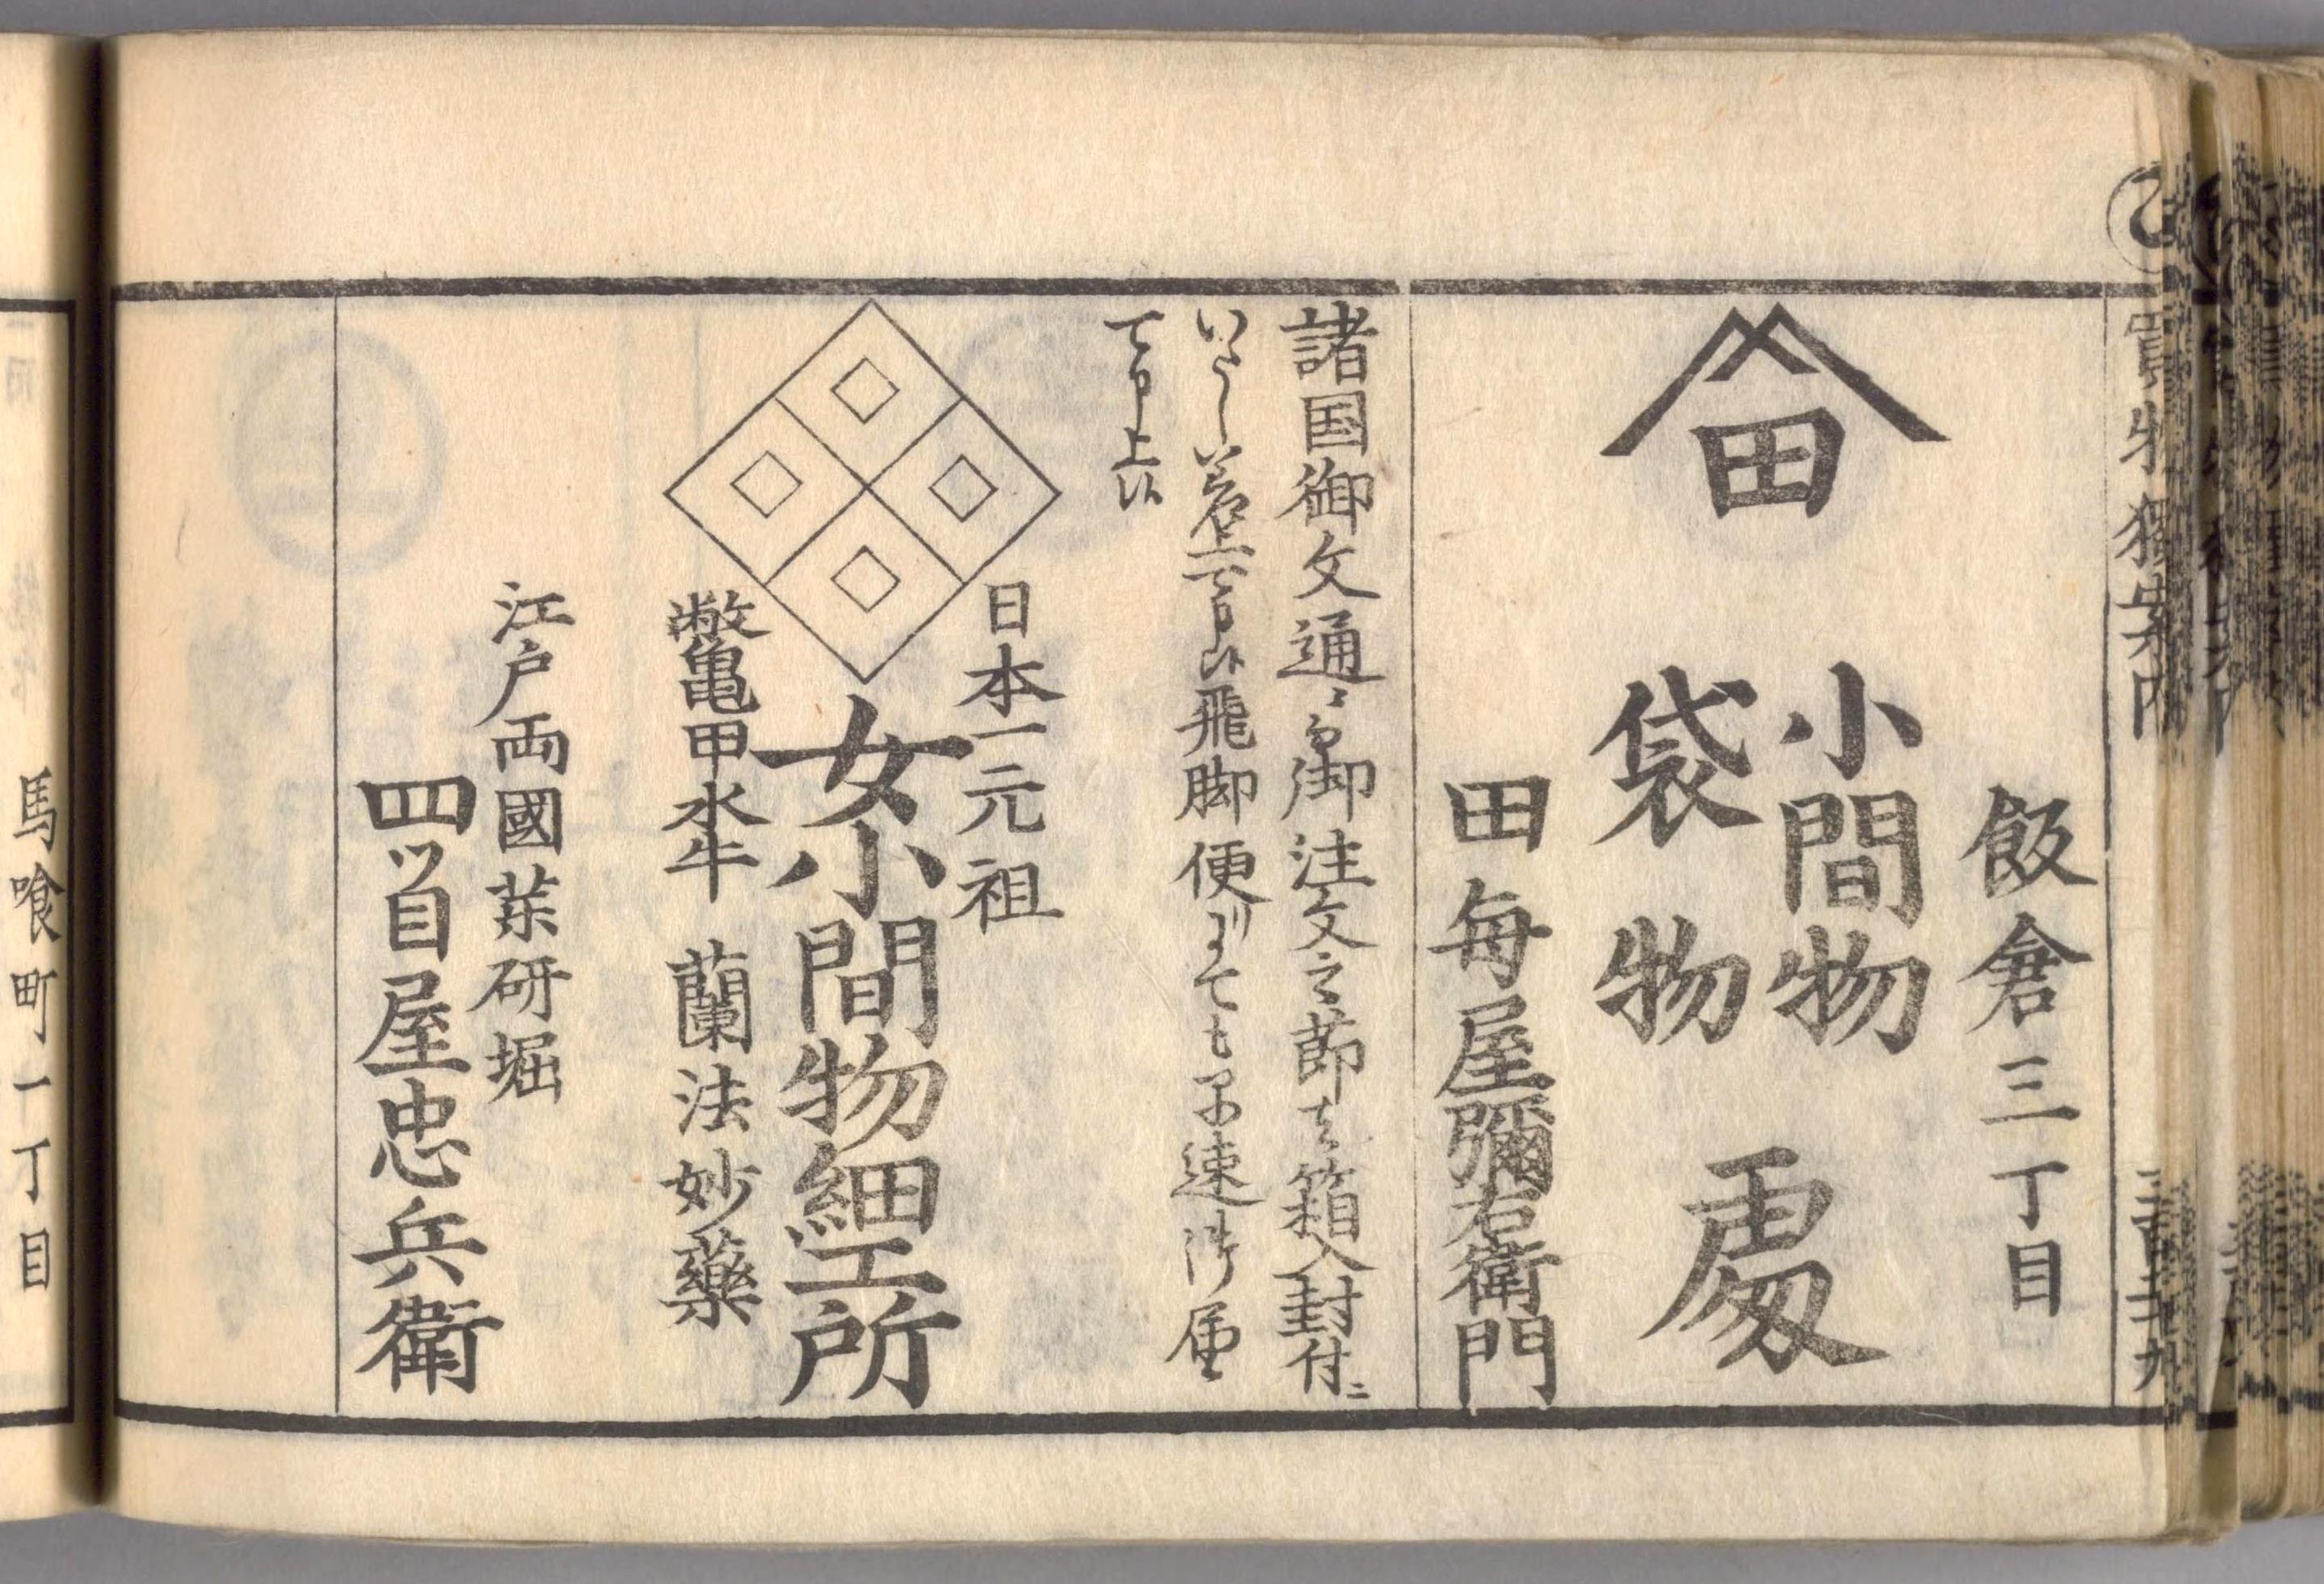 飯倉三丁目
田
小間物
袋物
處
田毎屋彌右衛門
諸国御文通ニ而御注文之節者箱入封付ニ
いたし差上可申候飛脚便りにても早速御届
可申上候
日本一元祖
女小間物細工所
鼈甲水牛 蘭法妙藥
江戸両國薬研堀
四ツ目屋忠兵衛
馬喰町一丁目